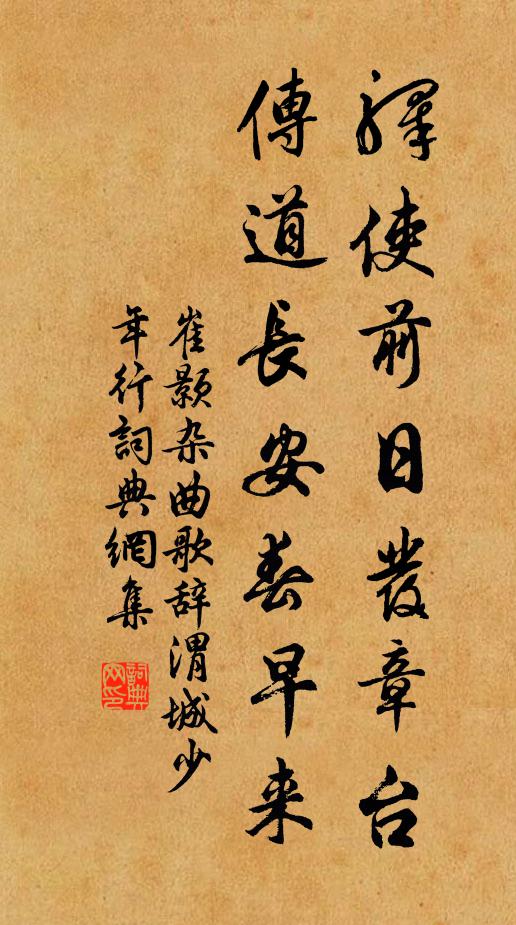 驛使前日發章台
傳道長安春早来
崔颢杂曲歌辞渭城少
年行詞典網集
詞典網印